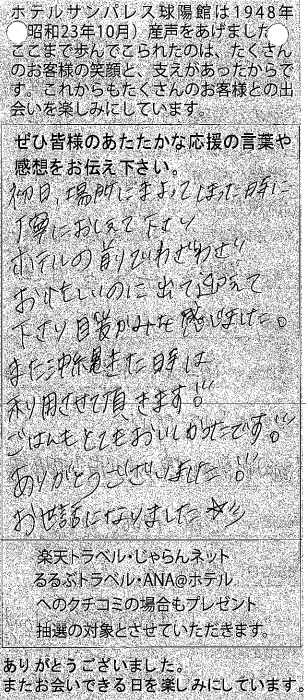 ホテルサンパレス球陽館は1948年
(昭和23年10月）産声をあげました
ここまで歩んでこられたのは、たくさん
のお客様の笑顔と、支えがあったからで
す。これからもたくさんのお客様との出
会いを楽しみにしています。
ぜひ皆様のあたたかな応援の言葉や
感想をお伝え下さい。
初日、場所にまよってしまった時に
丁寧におしえて下さり
ホテルの前でわざわざ
お忙しいのに出て迎えて
下さり 目 を感じました。
また沖縄来た時は
利用させて頂きます!!
ごはんもとてもおいしかったです!!
ありがとうございました!!
お世話になりました☆彡
楽天トラベル・じゃらんネット
るるぶトラベル・ANA@ホテル
へのクチコミの場合もプレゼント
抽選の対象とさせていただきます。
ありがとうございました。
またお会いできる日を楽しみにしています